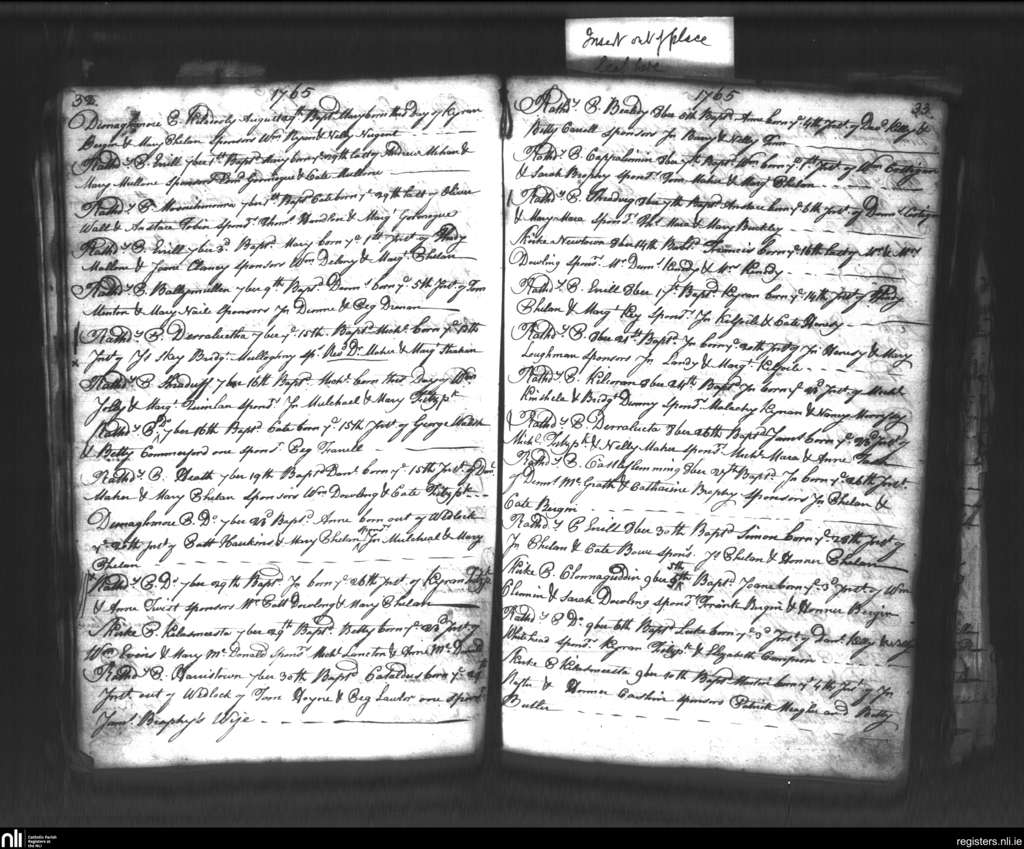 Insert out of place
32.
1765
Donaghmore P. Kilderly August Bapt. Mary born third Day of Kyran
Bergin & Mary Phelan Sponsors Wm Ryan & Nelly Nugent
Rathd. P. Erill 7ber 1st Bapt. Mary born ye 29th last of Andrew Mohan &
Mary Mullone Sponsors & Cate Mullone
Rathd. P. 7ber 1st Bapt. Cate born ye 29th last of Oliver
Wall & Anstace Tobin Sponsrs. Thoms Handlon & Margt.
Rathd. P. Erill 7ber 3d Baptd. Mary born ye 1st Inst. of Thady
Mallone & Joane Clancy sponsors Wm Delany & Margt. Phelan
Rathd. P. Ballymullen 7ber 9th Baptd. Dennis born ye 5th Inst. of Tom
& Mary Nail Sponsors Jn & Peg
Rathd. P. Derralustha 7ber ye 15th Bapt. Michl. born ye 13th
Inst. of & Bridgt. Sps. Revd. Dr. Maher & Margt.
Rathd. P. 7ber 16th Bapt. Michl. born this Day of Wm
Joley & Margt. Quinlan Sponsrs. Jn Mulchael & Mary Fitzpk.
Rathd. P. Do. 7ber 16th Bapt. Cate born ye 15th Inst. of George Walsh
& Betty Commerford one sponsr. Peg
Rathd. P. Heath 7ber 19th Baptd Danl. born ye 15th Inst. of Danl.
Maher & Mary Phelan sponsors Wm Dowling & Cate Fitzpk.
Donaghmore P. Do. 7ber 28 Baptd. Anne born out of Wedlock
ye 26th Inst. of Patt Hawkins & Mary Phelan Sponsrs Jn Mulchael & Mary
Phelan
Rathd. P. Do. 7ber 29th Bapt. Jn born ye 26th Inst. of Kyran Fitzpk.
& Anne Twist sponsors Mr Patt Dowling & Mary Phelan
Skirke P. Kilasmeesta 7ber 29th Baptd. Betty born ye 28 Inst. of
Wm Evans & Mary Mc Donald Sponsrs. Michl. & Anne Mc Donald
Rathd. P. Harristown 7ber 30th Baptd Cataldus born ye 29th
Inst. out of Wedlock of Tom Hoyne & Peg Lawlor one sponsr.
James Brophy's Wife
1765
33.
Rathd. P. 8ber 6th Bapt. Anne born ye 4th Inst. of Danl. Kelly &
Betty Carroll Sponsors Jn & Nelly
Rathd. P. Cappalinnin 8ber 7th Baptd. Wm born ye 1st Inst. of Wm Costigan
& Sarah Brophy Sponsrs. Tom Maher & Margt. Phelan
Rathd. P. 8ber 7th Baptd. Anstace born ye 6th Inst. of Dennis Costigan
& Mary Mara Sponsrs. Thos. Mara & Mary Buckley
Skirke Newtown 8ber 14th Baptd. Francis born ye 16th last of Mr & Mrs
Dowling Sponsrs. Mr Dennis Kenedy & Mrs Kenedy
Rathd. P. Erill 8ber 17th Baptd. Kyran born ye 14th Inst. of Thady
Phelan & Margt. Key Sponsrs. Jn Kilfoile & Cate
Rathd. P. 8ber 21st Baptd. Jn born ye 20th Inst. of Jn & Mary
Loughman Sponsors Jn & Margt. Kilfoile
Rathd. P. Kilcoran 8ber 24th Baptd. Jn born ye 23 Inst. of Michl.
& Bridgt. Dunny Sponsrs. Malachy Kyran & Nancy
Rathd. P. Derralusta 8ber 26th Baptd. James born ye 23 Inst. of
Michl. Fitzpk. & Nelly Maher Sponsrs. Michl. Mara & Anne
Rathd. P. Castleflemming 8ber 27th Baptd. Jn born ye 26th Inst.
of Dennis Mc Grath & Catharine Brophy Sponsors Jn Phelan &
Cate Bergin
Rathd. P. Erill 8ber 30th Baptd. Simon born ye 28th Inst. of
Jn Phelan & Cate Bowe sponsrs. Js Phelan & Honner Phelan
Skirke P. Clonnaguddin 9ber 5th Baptd. Joane born ye 3 Inst. of Wm
& Sarah Dowling Sponsrs. Frank Bergin & Honner Bergin
Rathd. P. Do. 9ber 6th Baptd. Luke born ye 3d Inst. of Danl. Kelly & Nelly
Whitehead Sponsrs. Kyran Fitzpk. & Elizabeth Campion
Skirke P. Kilasmeesta 9ber 10th Baptd. Martin born ye 4th Inst. of Jn
& Honner Sponsors Patrick Meagher and Betty
Butler
nli
Catholic Parish
Registers at
the NLI
registers.nli.ie